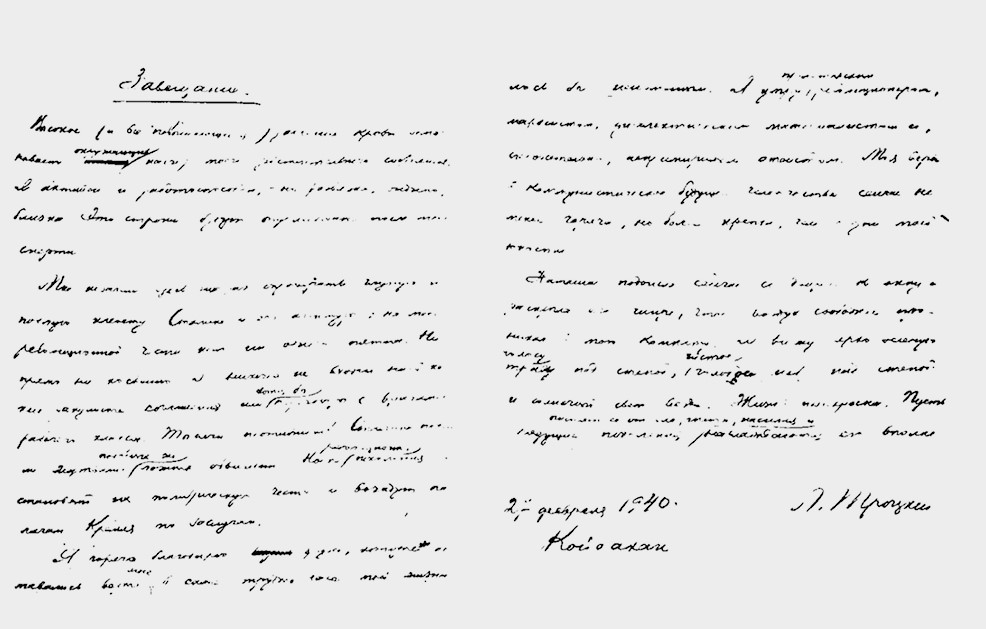 Завещание.
Высокое (и все повышающееся) давление крови обма-
нывает окружающих насчет моего действительного состояния.
Я активен и работоспособен, но развязка, видимо,
близка. Эти строки будут опубликованы после моей
смерти.
Мне незачем здесь еще раз опровергать глупую и
подлую клевету Сталина и его агентуры: на моей
революционной чести нет ни одного пятна. Ни
прямо ни косвенно я никогда не входил ни в ка-
кие закулисные соглашения или хотя бы переговоры с врагами
рабочего класса. Тысячи противников Сталина погиб-
ли жертвами подобных же ложных обвинений. Новые революционные поколения
восстановят их политическую честь и воздадут па-
лачам Кремля по заслугам.
Я горячо благодарю друзей, которые ос-
тавались верны мне в самые трудные часы моей жизни
лся бы неизменно. Я умру пролетарским революционером,
марксистом, диалектическим материалистом и,
следовательно, непримиримым атеистом. Моя вера
в коммунистическое будущее человечества сейчас не
менее горяча, но более крепка, чем в дни моей
юности.
Наташа подошла сейчас со двора к окну и
раскрыла его шире, чтоб воздух свободнее про-
мою комнату. вижу ярко зеленую
полосу травы под стеной, чистое голубое небо над стеной
и солнечный свет везде. Жизнь прекрасна. Пусть
грядущие поколения очистят ее от зла, гнета, насилия и наслаждаются ею вполне
27 февраля 1940.
Л. Троцкий
Койоакан